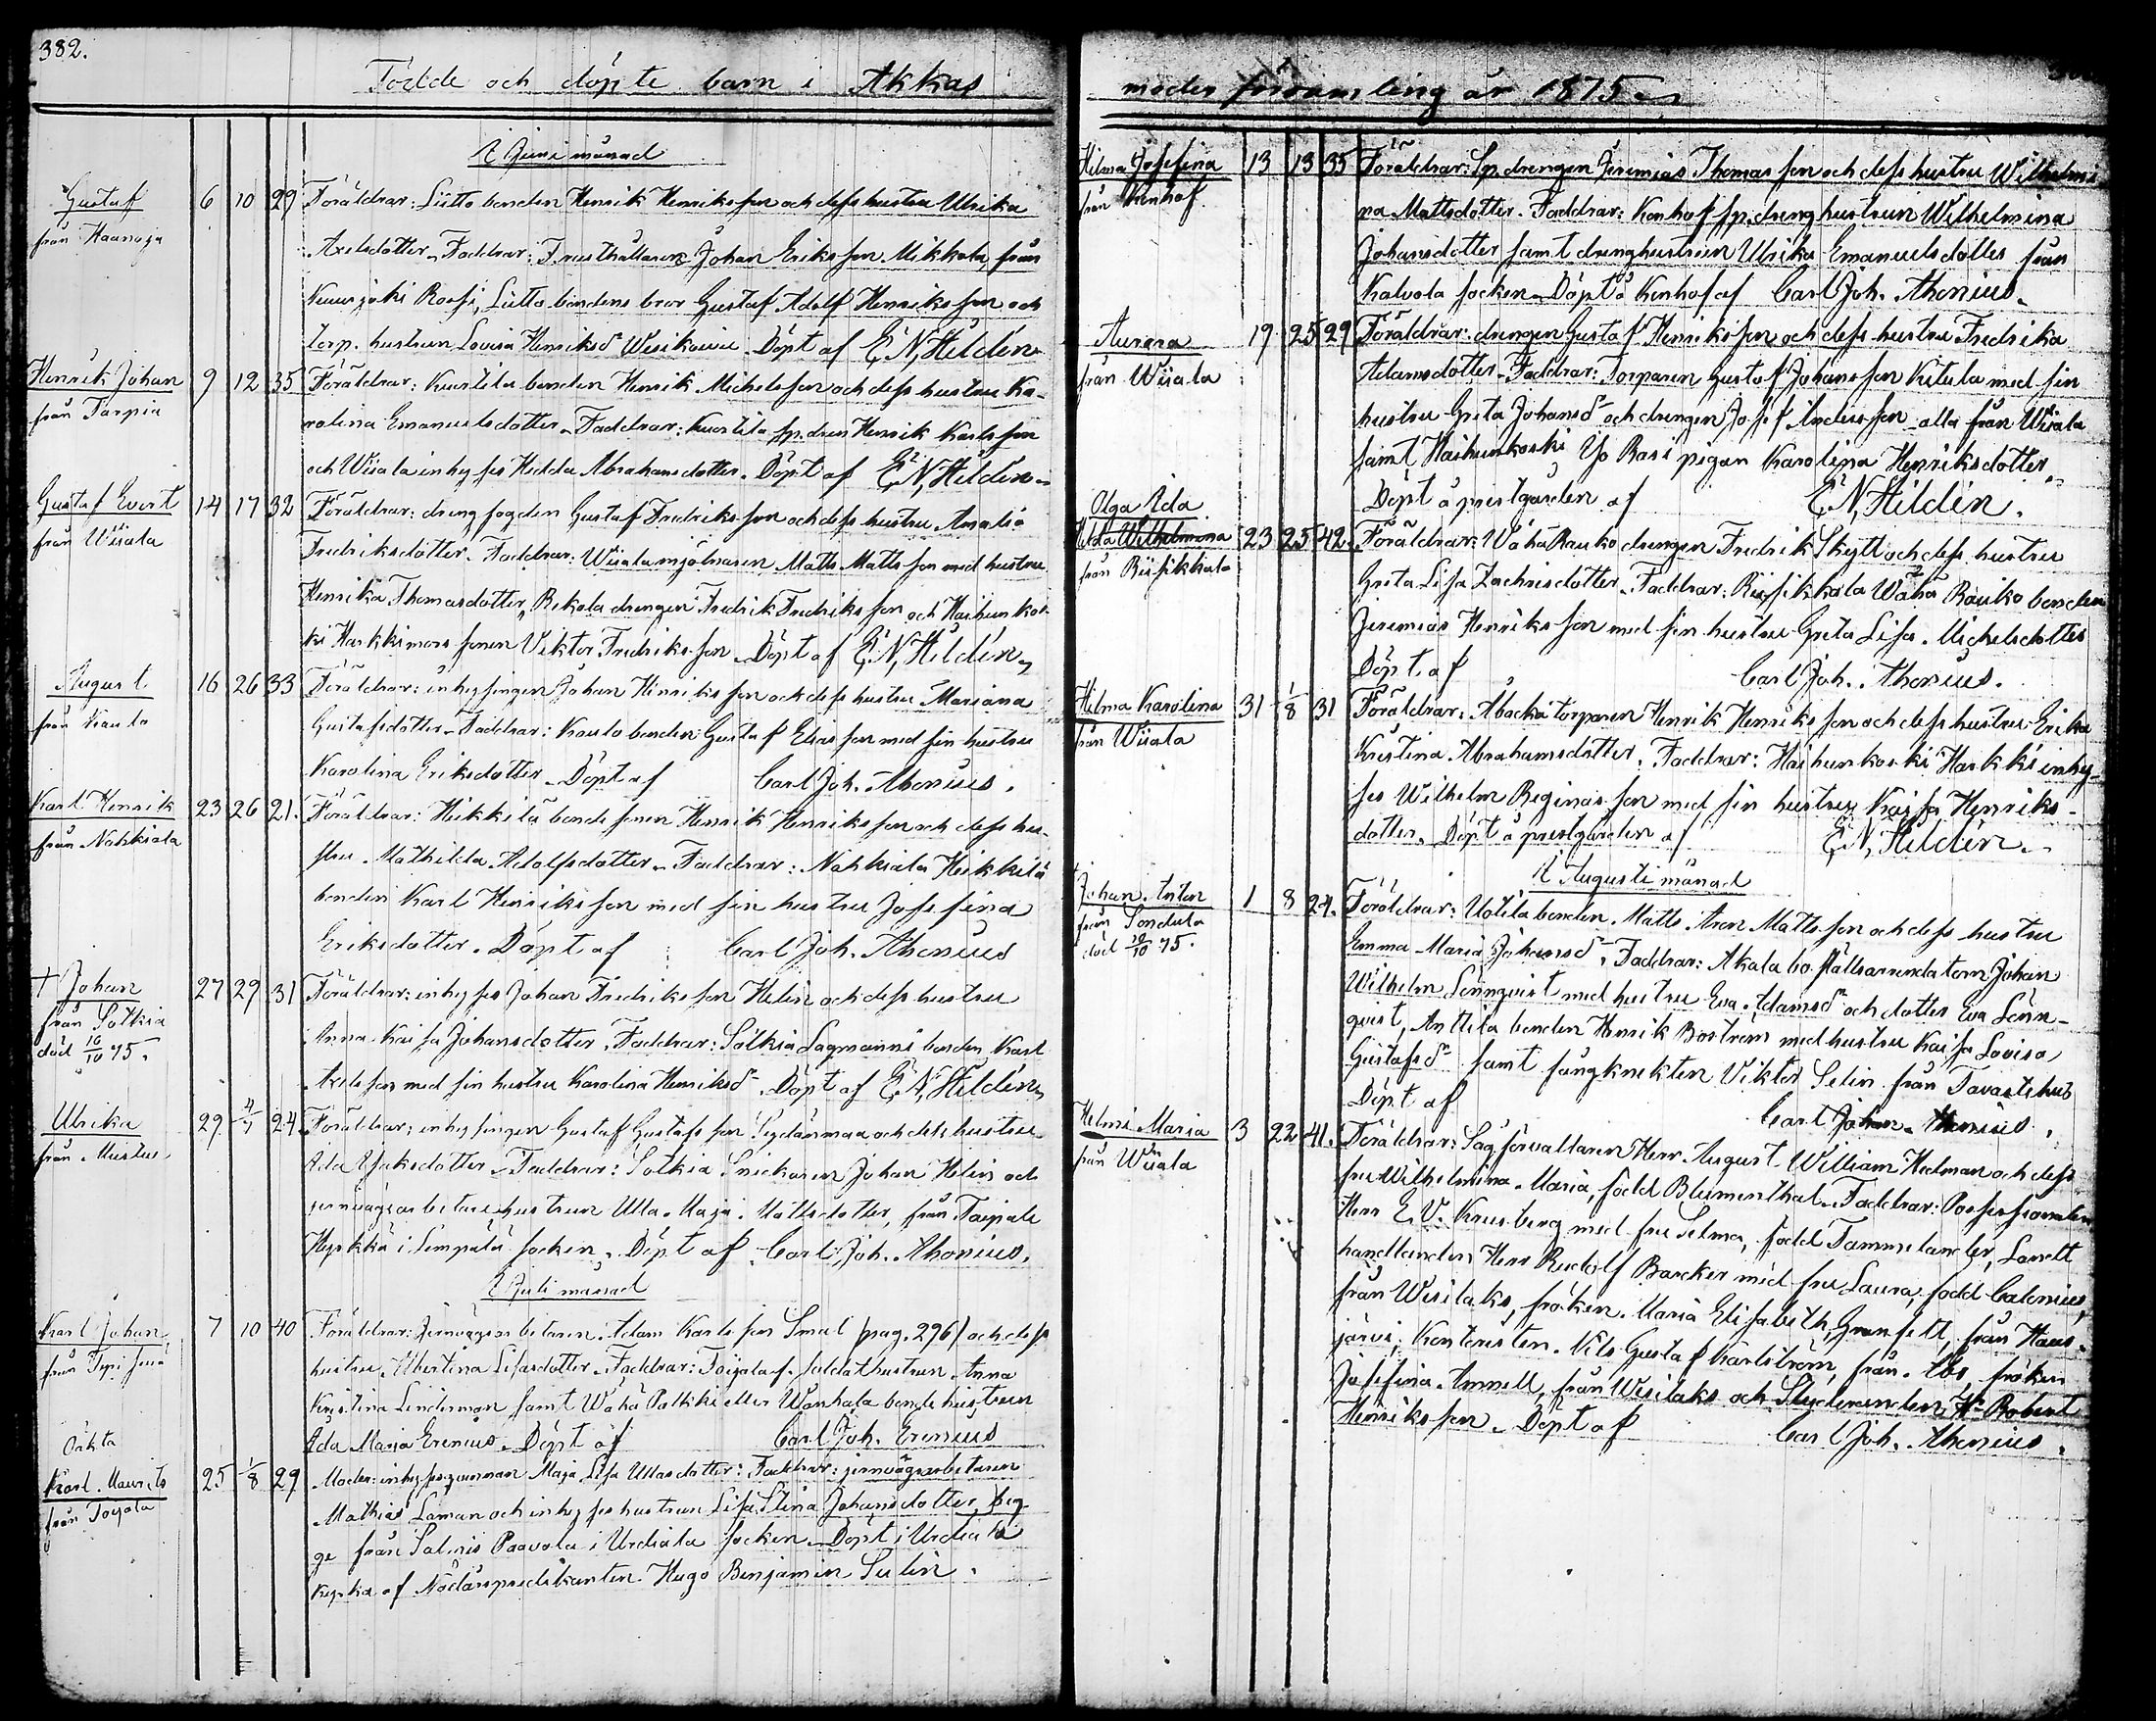 382.
Födde och döpte barn i Akkas
I Juni månad
Gustaf
från Haanoja
6 10 29 Föräldrar: Liuttobonden Henrik Henriksson och dess hustru Ulrika
Axelsdotter. Faddrar: Johan Eriksson Mikkola, från
Kuurjoki Rossi, Liutto bondens bror Gustaf Adolf Henriksson och
torp. hustrun Lovisa Henriksdr Döpt af E. N. Hildén
Henrik Johan
från Tarpia
9 12 35 Föräldrar: Kurstila bonden Henrik Michelsson och dess hustru Ka-
rolina Emanuelsdotter. Faddrar: Kurstila Henrik Karlsson
och Wiiala inhyses Hedda Abrahamsdotter. Döpt af E. N. Hildén.
Gustaf Evert
från Wiiala
14 17 32 Föräldrar: drengfogden Gustaf Fredriksson och dess hustru Amalia
Fredriksdotter. Faddrar: Wiiala mjölnaren Matts Mattsson med hustru
Henrika Thomasdotter, Rekola drengen Fredrik Fredriksson och Haihunkos-
ki Harkki sonen Viktor Fredriksson. Döpt af E. N. Hildén.
August
från Kaula
16 26 33 Föräldrar: inhysingen Johan Henriksson och dess hustru Mariana
Gustafsdotter. Faddrar: Kaulo bonden Gustaf Eliasson med sin hustru
Karolina Eriksdotter. Döpt af Carl Joh. Ahonius.
Karl Henrik
från Nahkiala
23 26 21. Föräldrar: Heikkilä bondesonen Henrik Henriksson och dess hu-
stru Mathilda Adolfsdotter. Faddrar: Nahkiala Heikkilä
bonden Karl Henriksson med sin hustru Josefina
Eriksdotter. Döpt af Carl Joh. Ahonius
+ Johan
från Sotkia
död 16/10 75.
27 29 31 Föräldrar: inhyses Johan Fredriksson Helin och dess hustru
Anna Kaisa Johansdotter. Faddrar: Sotkia Lagmanni bonden Karl
Axelsson med sin hustru Karolina Henriksdr Döpt af E. N. Hildén
Ulrika
från Mustue
29 4/7 24. Föräldrar: inhysingen Gustaf Gustafsson och dess hustru
Ada Isaksdotter. Faddrar: Sotkia Snickaren Johan Helin och
jernvägsarbetarehustrun Ulla Maja Mattsdotter, från Taipale
i Lempälä socken. Döpt af Carl Joh. Ahonius.
I Juli månad
Karl Johan
7 10 40 Föräldrar: Jernvägsarbetaren Adam Karlsson Smal (pag. 296) och dess
hustru Albertina Lisasdotter. Faddrar: Toijala f. soldathustrun Anna
Kristina Linderman samt Wähä Palkki eller Wanhala bondehustrun
Ada Maria Erenius. Döpt af Carl Joh. Erenius
Oäkta
Karl Maurits
från Toijala
25 1/8 29 Moder: inhyses qvinnan Maja Lisa Ullasdotter. Faddrar: jernvägsarbetaren
Mathias Laman och inhyses hustrun Lisa Stina Johansdotter, beg-
ge från Salmis Paavola i Urdiala socken. Döpt i Urdiala
kyrka af Nådårspredikanten Hugo Benjamin Selin.
moder församling år 1875.
Hilma Josefina
från Konhof
13 13 35 Föräldrar: Sp. drengen Jeremias Thomasson och dess hustru Wilhelmi-
na Mattsdotter. Faddrar: Konhof sp. dreng hustrun Wilhelmina
Johansdotter samt drenghustrun Ulrika Emanuelsdotter från
Kalvola socken. Döpt å Konhof af Carl Joh. Ahonius.
Aurora
från Wiiala
19 25 29 Föräldrar: drengen Gustaf Henriksson och dess hustru Fredrika
Adamsdotter. Faddrar: Torparen Gustaf Johansson Kitula med sin
hustru Greta Johansdr och drengen Josef Andersson alla från Wiiala
samt Haihunkoski Yo Rasi pigan Karolina Henriksdotter.
Döpt å prestgården af E. N. Hildén.
Olga Ida
Hilda Wilhelmina
från Riisikkala
23 25 42. Föräldrar: Wähä Rauko drengen Fredrik Skytt och dess hustru
Greta Lisa Zachrisdotter. Faddrar: Riisikkala Wähä Rauko bonden
Jeremias Henriksson med sin hustru Greta Lisa Michelsdotter
Döpt af Carl Joh. Ahonius.
Hilma Karolina
från Wiiala
31 1/8 31 Föräldrar: Åbacka torparen Henrik Henriksson och dess hustru Erika
Kristina Abrahamsdotter. Faddrar: Haihunkoski Harkki inhy-
ses Wilhelm Reginasson med sin hustru Kaisa Henriks-
dotter. Döpt å prestgården af E. N. Hildén.
I Augusti månad
+
Johan Anton
från Sondula
död 10/10 75.
1 8 24. Föräldrar: Uotila bonden Matts Aron Mattsson och dess hustru
Emma Maria Johansdr. Faddrar: Akala boställsarrendatorn Johan
Wilhelm Lönnqvist med hustru Eva Adamsdr och dotter Eva Lönn-
qvist, Anttila bonden Henrik Boström med hustru Kaisa Lovisa
Gustafsdr samt fångknekten Viktor Selin från Tavastehus
Döpt af Carl Johan Ahonius.
Helmi Maria
från Wiiala
3 22 41. Föräldrar: Sågförvaltaren Herr August William Hedman och dess
fru Wilhelmina Maria, född Blumenthal. Faddrar: Possessionaten
Herr E. V. Krusberg med fru Selma, född Tammelander, Landt
handlanden Herr Rudolf Barcker med fru Laura, född Calonius,
från Wesilaks, fröken Maria Elisabeth Granfelt, från Haus-
järvi, Kontoristen Nils Gustaf Karlström, från Åbo, fröken
Josefina Amnell, från Wesilaks och Studeranden Hr Robert
Henriksson. Döpt af Carl Joh. Ahonius.